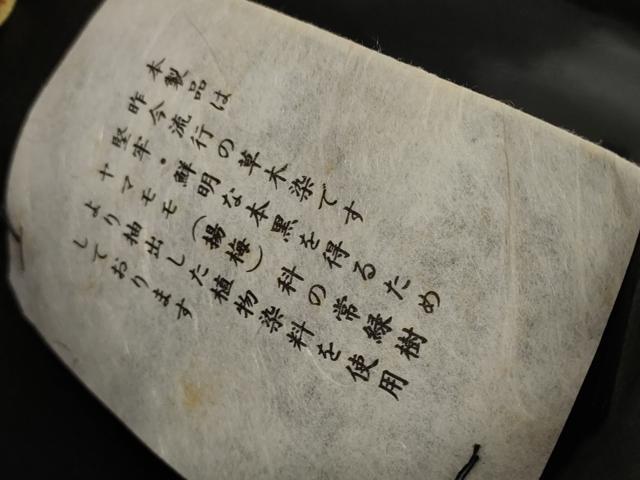 本製品は
昨今流行の草木染です
堅牢・鮮明な本黒を得るため
ヤマモモ(楊梅)科の常緑樹
より抽出した植物染料を使用
しております